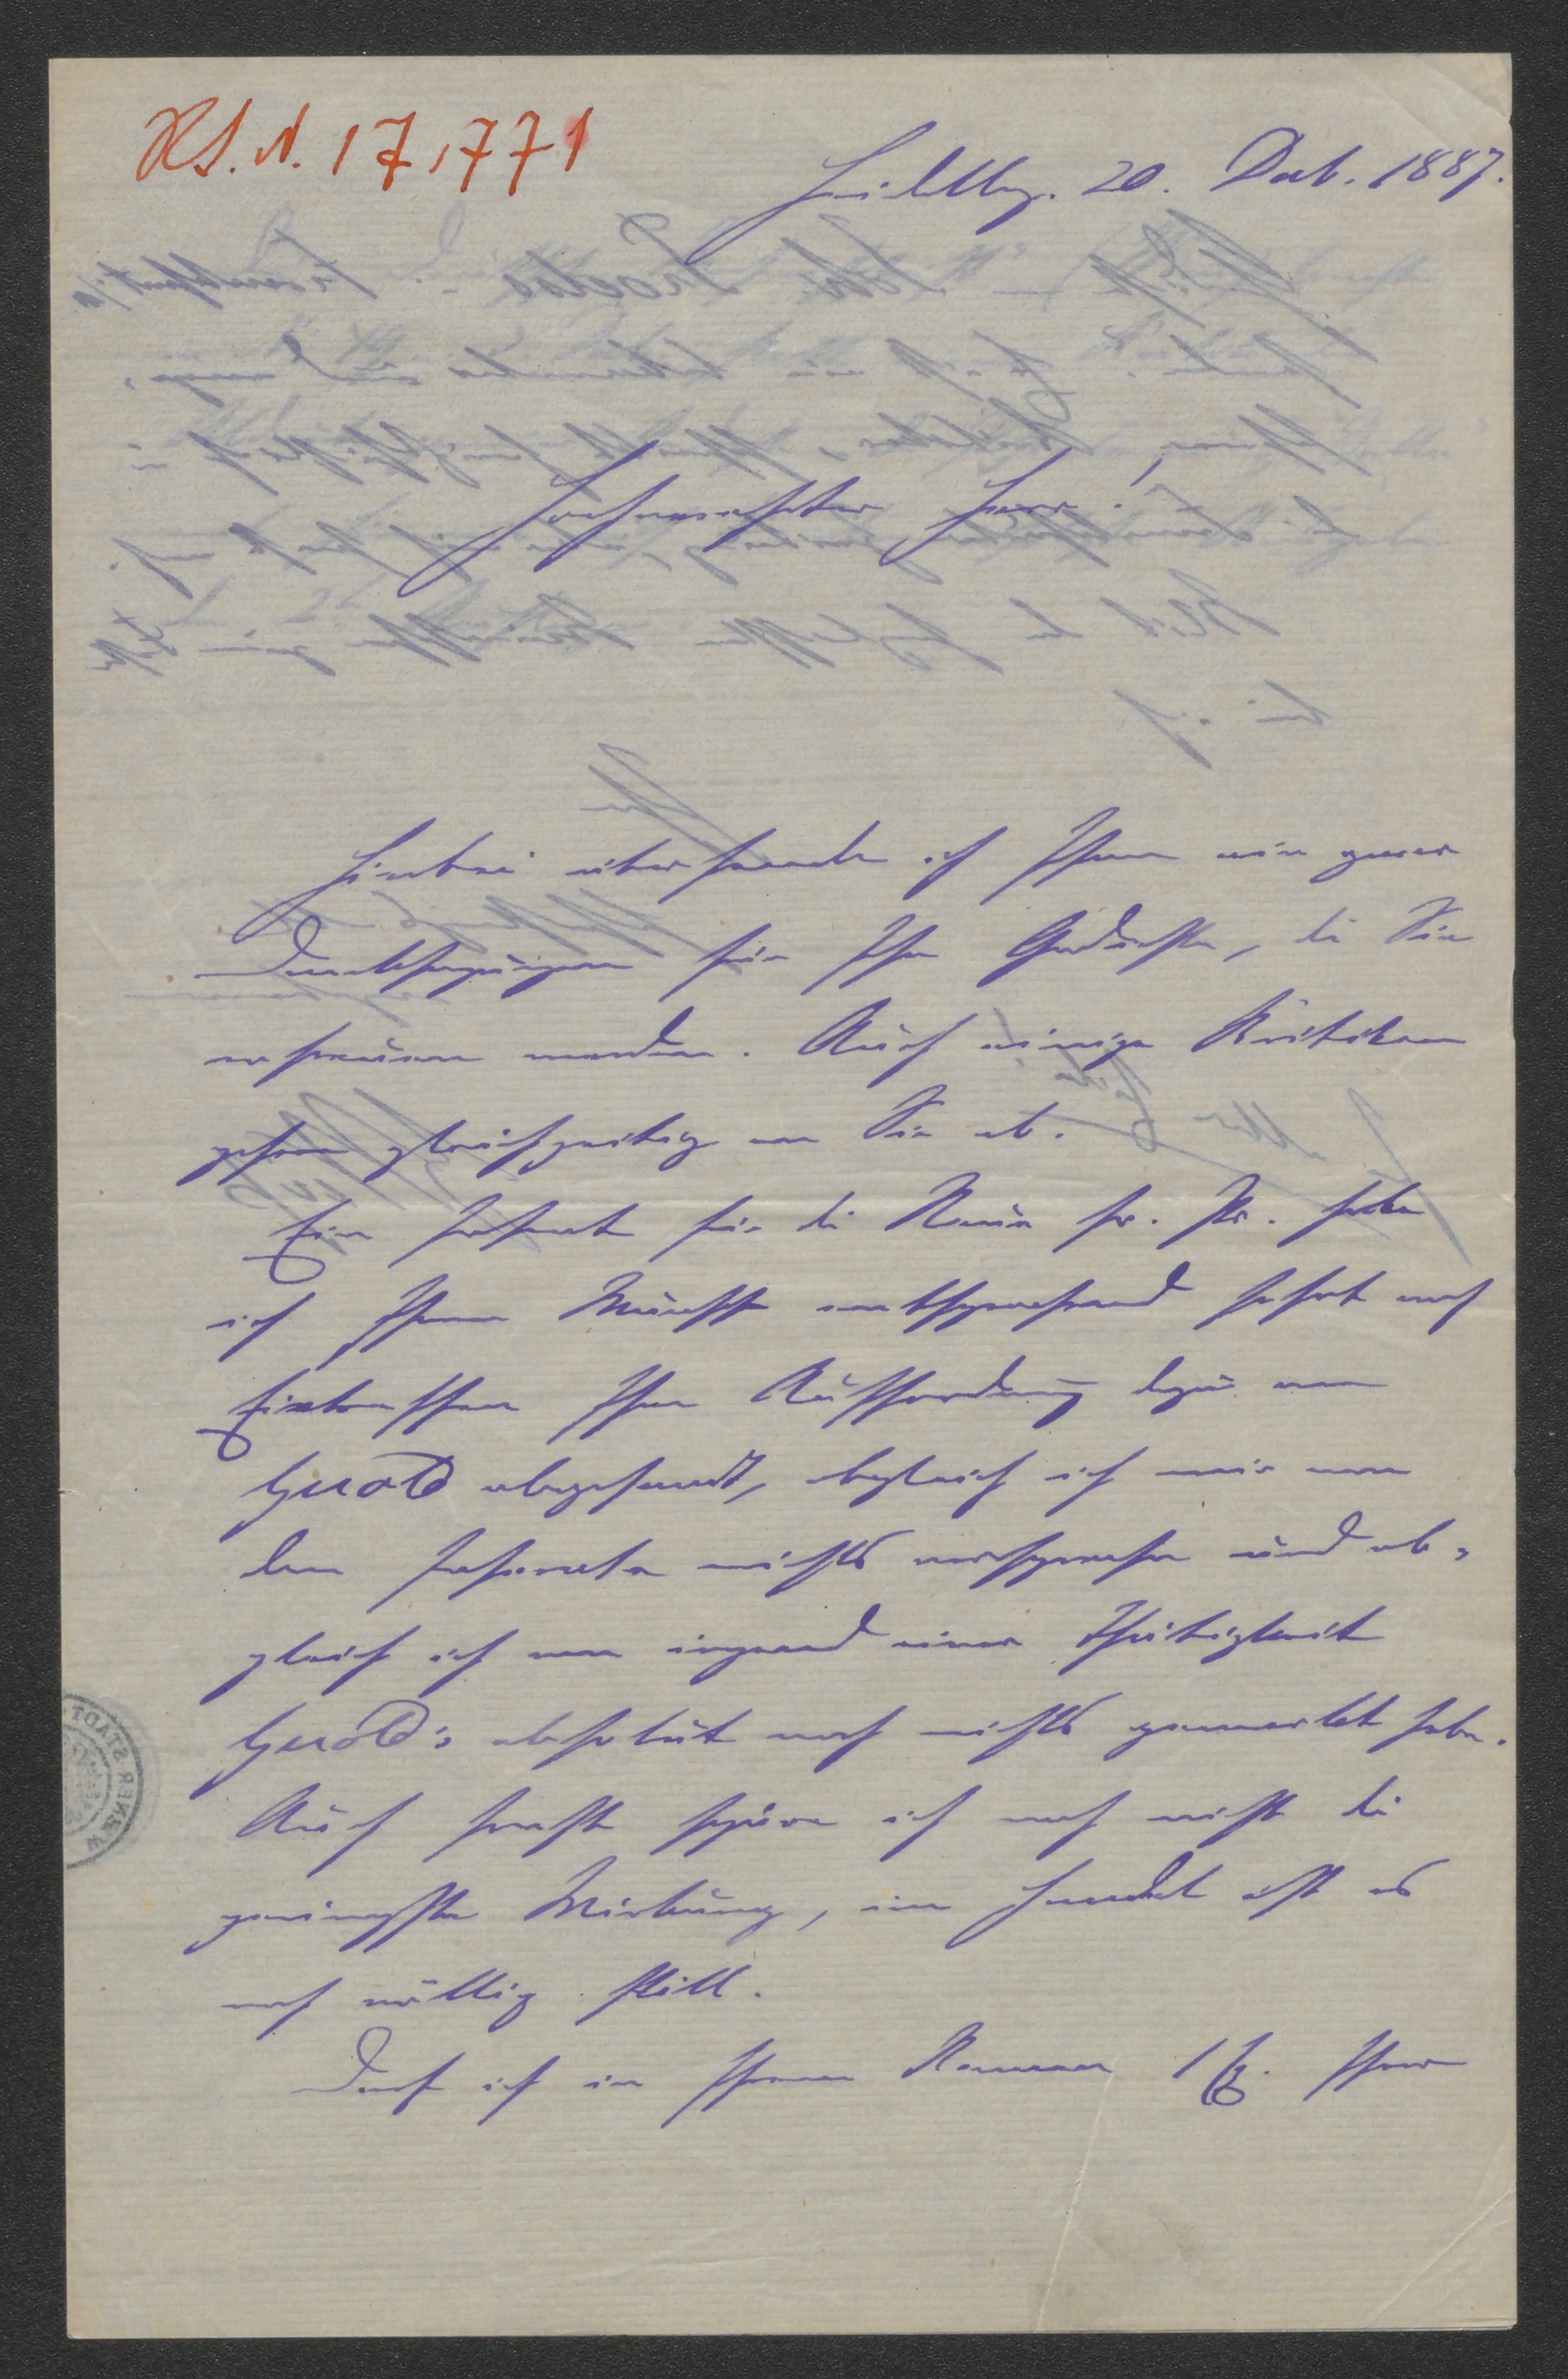 H.I.N. 17,771
Heidelbg. 20. Dec. 1887.
Hochverehrter Herr!
Hierbei übersende ich Ihnen ein paar
Danksagungen für Ihre Gedichte, die Sie
erfreuen werden. Auch einige Kritiken
gehen gleichzeitig an Sie ab.
Ein Inserat für die Neue fr. Pr. habe
ich Ihrem Wunsch entsprechend sofort nach
Eintreffen Ihrer Aufforderung dazu an
Gerold abgesandt, obgleich ich mir von
dem Inserate nichts verspreche und ob-
gleich ich von irgend einer Thätigkeit
Gerold's absolut noch nichts gemerkt habe.
Auch sonst spüre ich noch nicht die
geringste Wirkung, im Handel ist es
noch völlig still.
Darf ich in Ihrem Namen 1 Ex. Ihrer